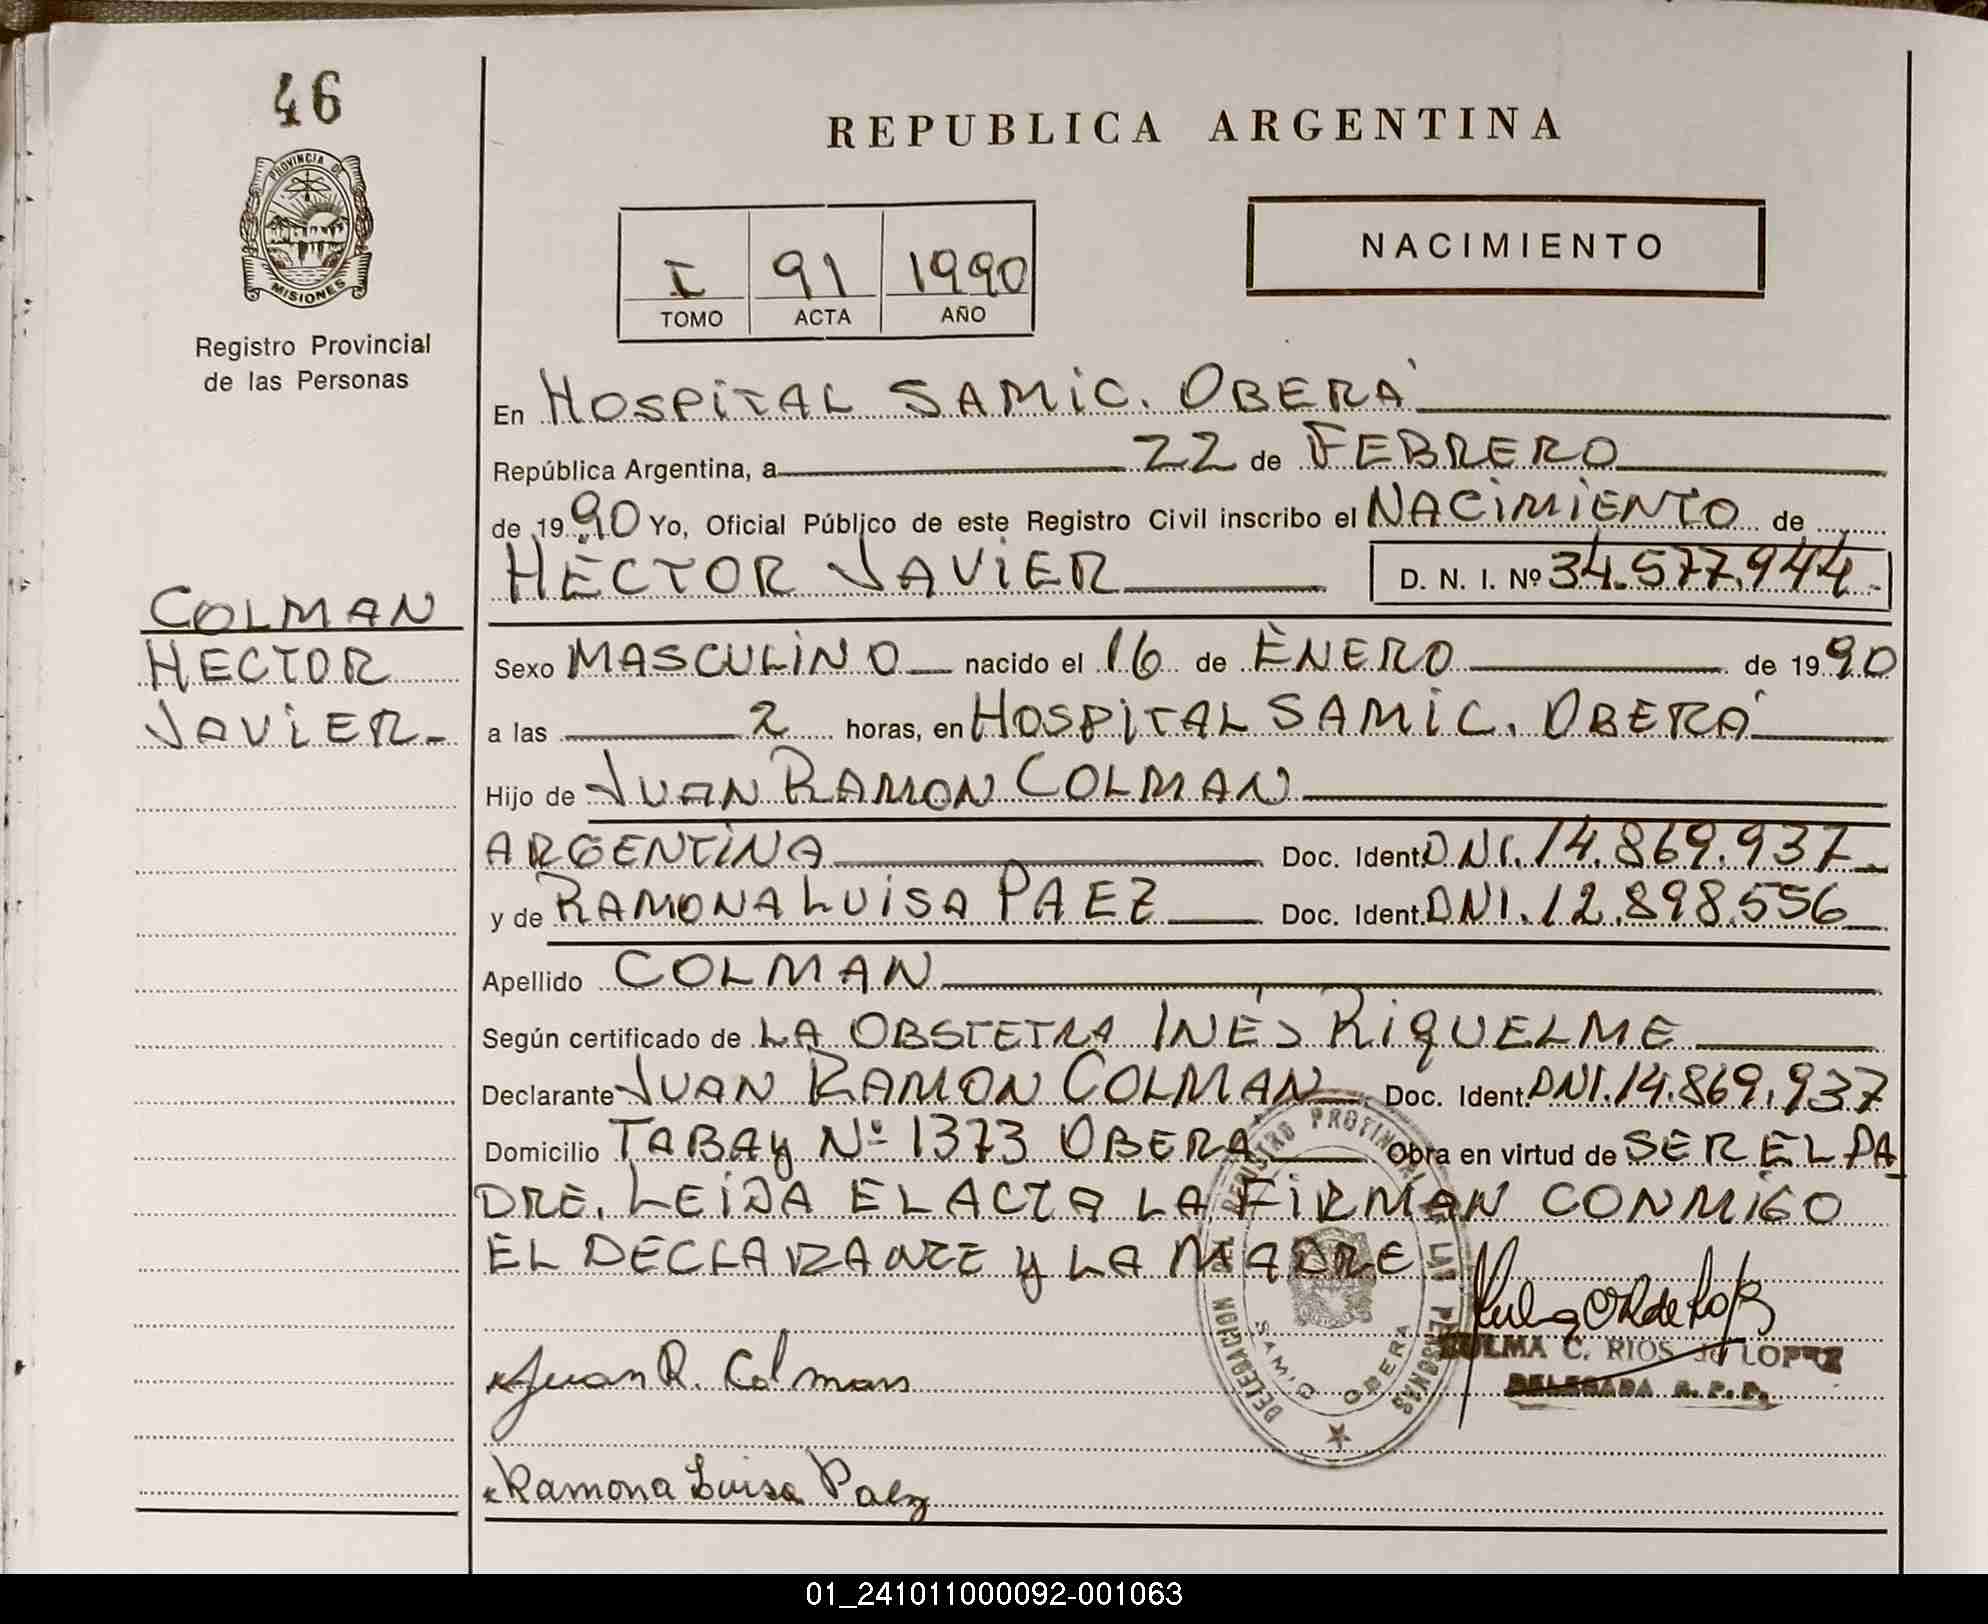 46
REPUBLICA ARGENTINA
PROVINCIA DE
MISIONES
Registro Provincial
de las Personas
I 91 1990
TOMO ACTA AÑO
NACIMIENTO
En HOSPITAL SAMIC. OBERÁ
República Argentina, a 22 de FEBRERO
de 1990 Yo, Oficial Público de este Registro Civil inscribo el NACIMIENTO de
HECTOR JAVIER D. N. I. Nº 34.577.944.-
COLMAN
HECTOR
JAVIER.-
Sexo MASCULINO nacido el 16 de ENERO de 1990
a las 2 horas, en HOSPITAL SAMIC. OBERÁ
Hijo de JUAN RAMON COLMAN
ARGENTINA Doc. Ident. DNI. 14.869.937
y de RAMONA LUISA PAEZ Doc. Ident. DNI. 12.898.556
Apellido COLMAN
Según certificado de LA OBSTETRA INÉS RIQUELME
Declarante JUAN RAMON COLMAN Doc. Ident. DNI. 14.869.937
Domicilio TABAY Nº 1373 OBERA Obra en virtud de SER EL PA
DRE. LEIDA EL ACTA LA FIRMAN CONMIGO
EL DECLARANTE Y LA MADRE
DELEGACION DEL REGISTRO PROVINCIAL DE LAS PERSONAS
SAMIC OBERA
ZULMA C. RIOS de LOPEZ
DELEGADA R. P. P.
Juan R. Colman
Ramona Luisa Paez
01_241011000092-001063